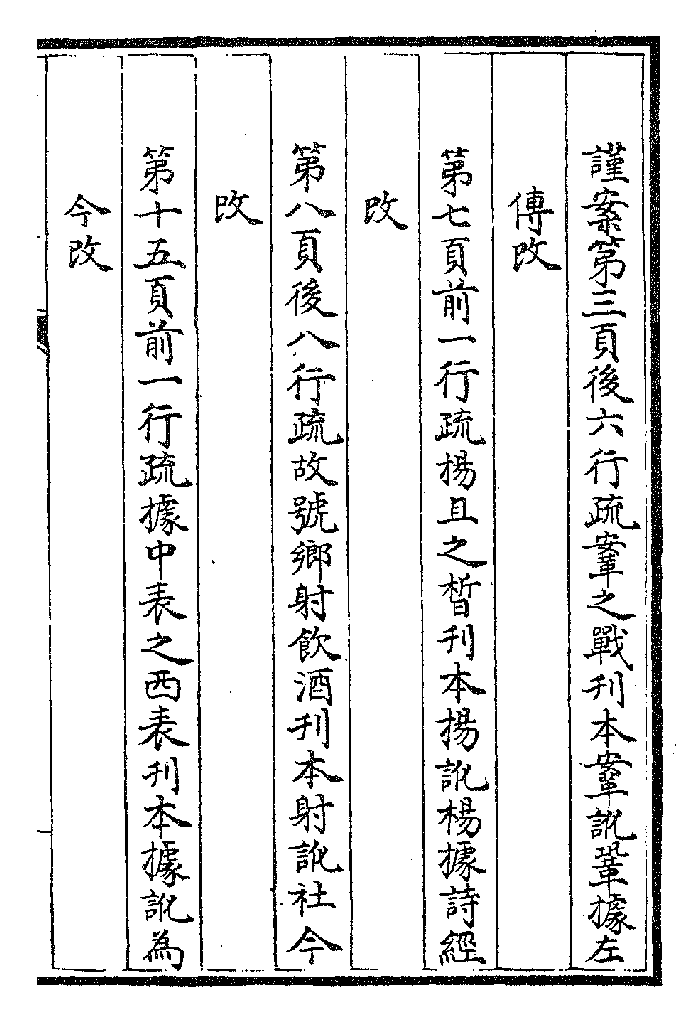 謹案第三頁後六行疏鞌之戰刊本鞌訛鞏據左
傳改
第七頁前一行疏揚且之晳刊本揚訛楊據詩經
改
第八頁後八行疏故號鄉射飲酒刊本射訛社今
改
第十五頁前一行疏據中表之西表刊本據訛為
今改